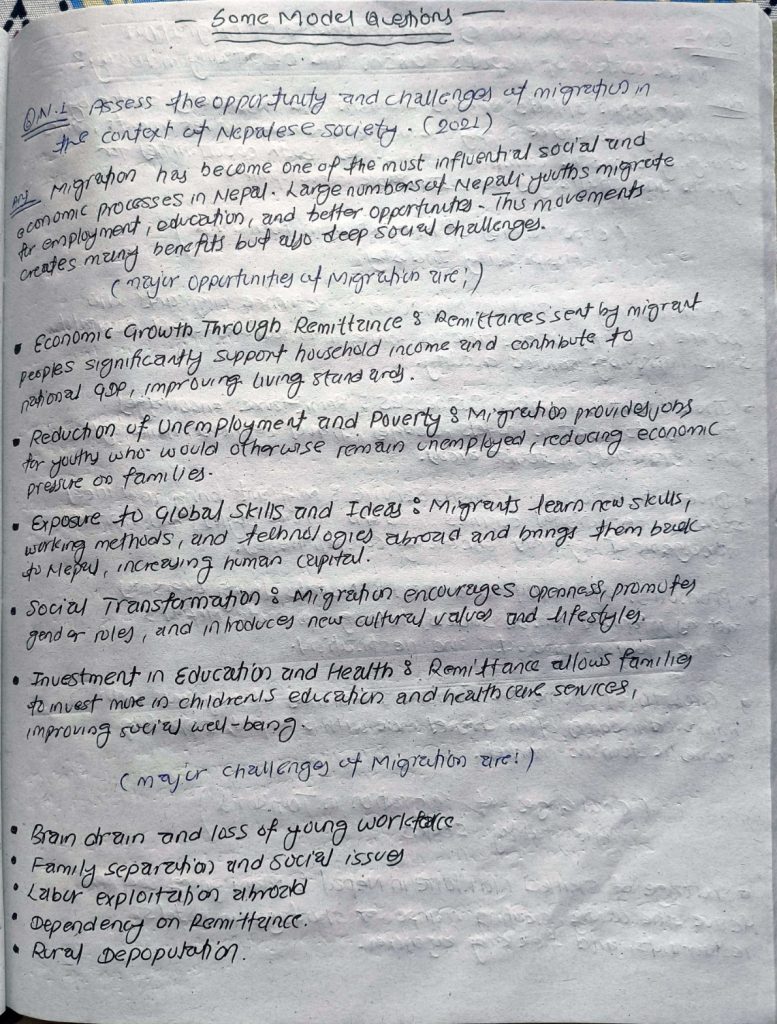 — Some Model Questions —
Q.N.1 Assess the opportunity and challenges of migration in
the context of Nepalese society. (2021)
Ans Migration has become one of the most influential social and
economic processes in Nepal. Large numbers of Nepali youths migrate
for employment, education, and better opportunities. This movements
creates many benefits but also deep social challenges.
(major opportunities of Migration are;)
• Economic Growth Through Remittance : Remittances sent by migrant
peoples significantly support household income and contribute to
national GDP, improving living standards.
• Reduction of Unemployment and Poverty : Migration provides jobs
for youths who would otherwise remain unemployed, reducing economic
pressure on families.
• Exposure to Global Skills and Ideas : Migrants learn new skills,
working methods, and technologies abroad and brings them back
to Nepal, increasing human capital.
• Social Transformation : Migration encourages openness, promotes
gender roles, and introduces new cultural values and lifestyles.
• Investment in Education and Health : Remittance allows families
to invest more in children's education and health care services,
improving social well-being.
(major challenges of Migration are:)
• Brain drain and loss of young workforce
• Family separation and social issues
• Labor exploitation abroad
• Dependency on Remittance.
• Rural Depopulation.